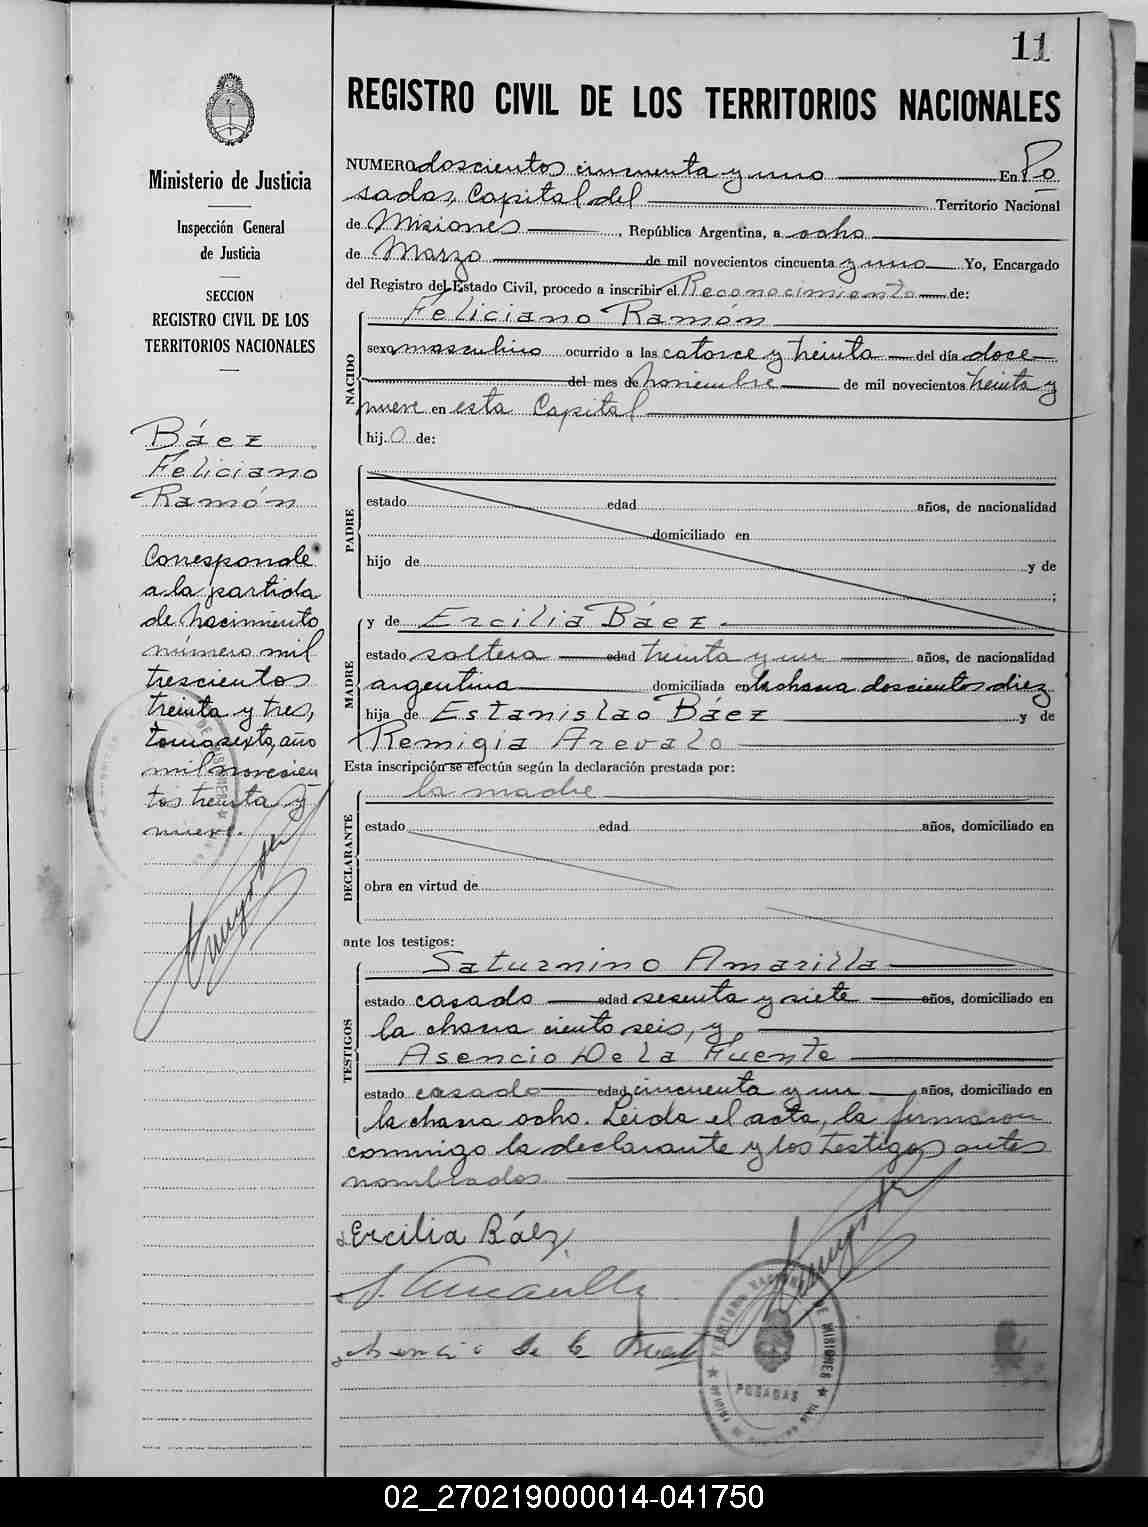 11
REGISTRO CIVIL DE LOS TERRITORIOS NACIONALES
Ministerio de Justicia
Inspección General
de Justicia
SECCION
REGISTRO CIVIL DE LOS
TERRITORIOS NACIONALES
Báez
Feliciano
Ramón
Corresponde
a la partida
de nacimiento
número mil
trescientos
treinta y tres,
tomo sexto, año
mil novecien
tos treinta y
nueve.
NUMERO doscientos cincuenta y uno En Po
sadas, Capital del Territorio Nacional
de Misiones, República Argentina, a ocho
de Marzo de mil novecientos cincuenta y uno Yo, Encargado
del Registro del Estado Civil, procedo a inscribir el Reconocimiento de:
NACIDO
Feliciano Ramón
sexo masculino ocurrido a las catorce y treinta del día doce
del mes de noviembre de mil novecientos treinta y
nueve en esta Capital
hij o de:
PADRE
estado edad años, de nacionalidad
domiciliado en
hijo de y de
;
MADRE
y de Ercilia Báez.
estado soltera edad treinta y un años, de nacionalidad
argentina domiciliada en la chacra doscientos diez
hija de Estanislao Báez y de
Remigia Arevalo
Esta inscripción se efectúa según la declaración prestada por:
DECLARANTE
la madre
estado edad años, domiciliado en
obra en virtud de
ante los testigos:
TESTIGOS
Saturnino Amarilla
estado casado edad sesenta y siete años, domiciliado en
la chacra ciento seis, y
Asencio De la Fuente
estado casado edad cincuenta y un años, domiciliado en
la chacra ocho. Leida el acta, la firmaron
conmigo la declarante y los testigos antes
nombrados
Ercilia Báez
S. Amarilla
Asencio de la Fuente
TERRITORIO NACIONAL DE MISIONES
POSADAS
02_270219000014-041750